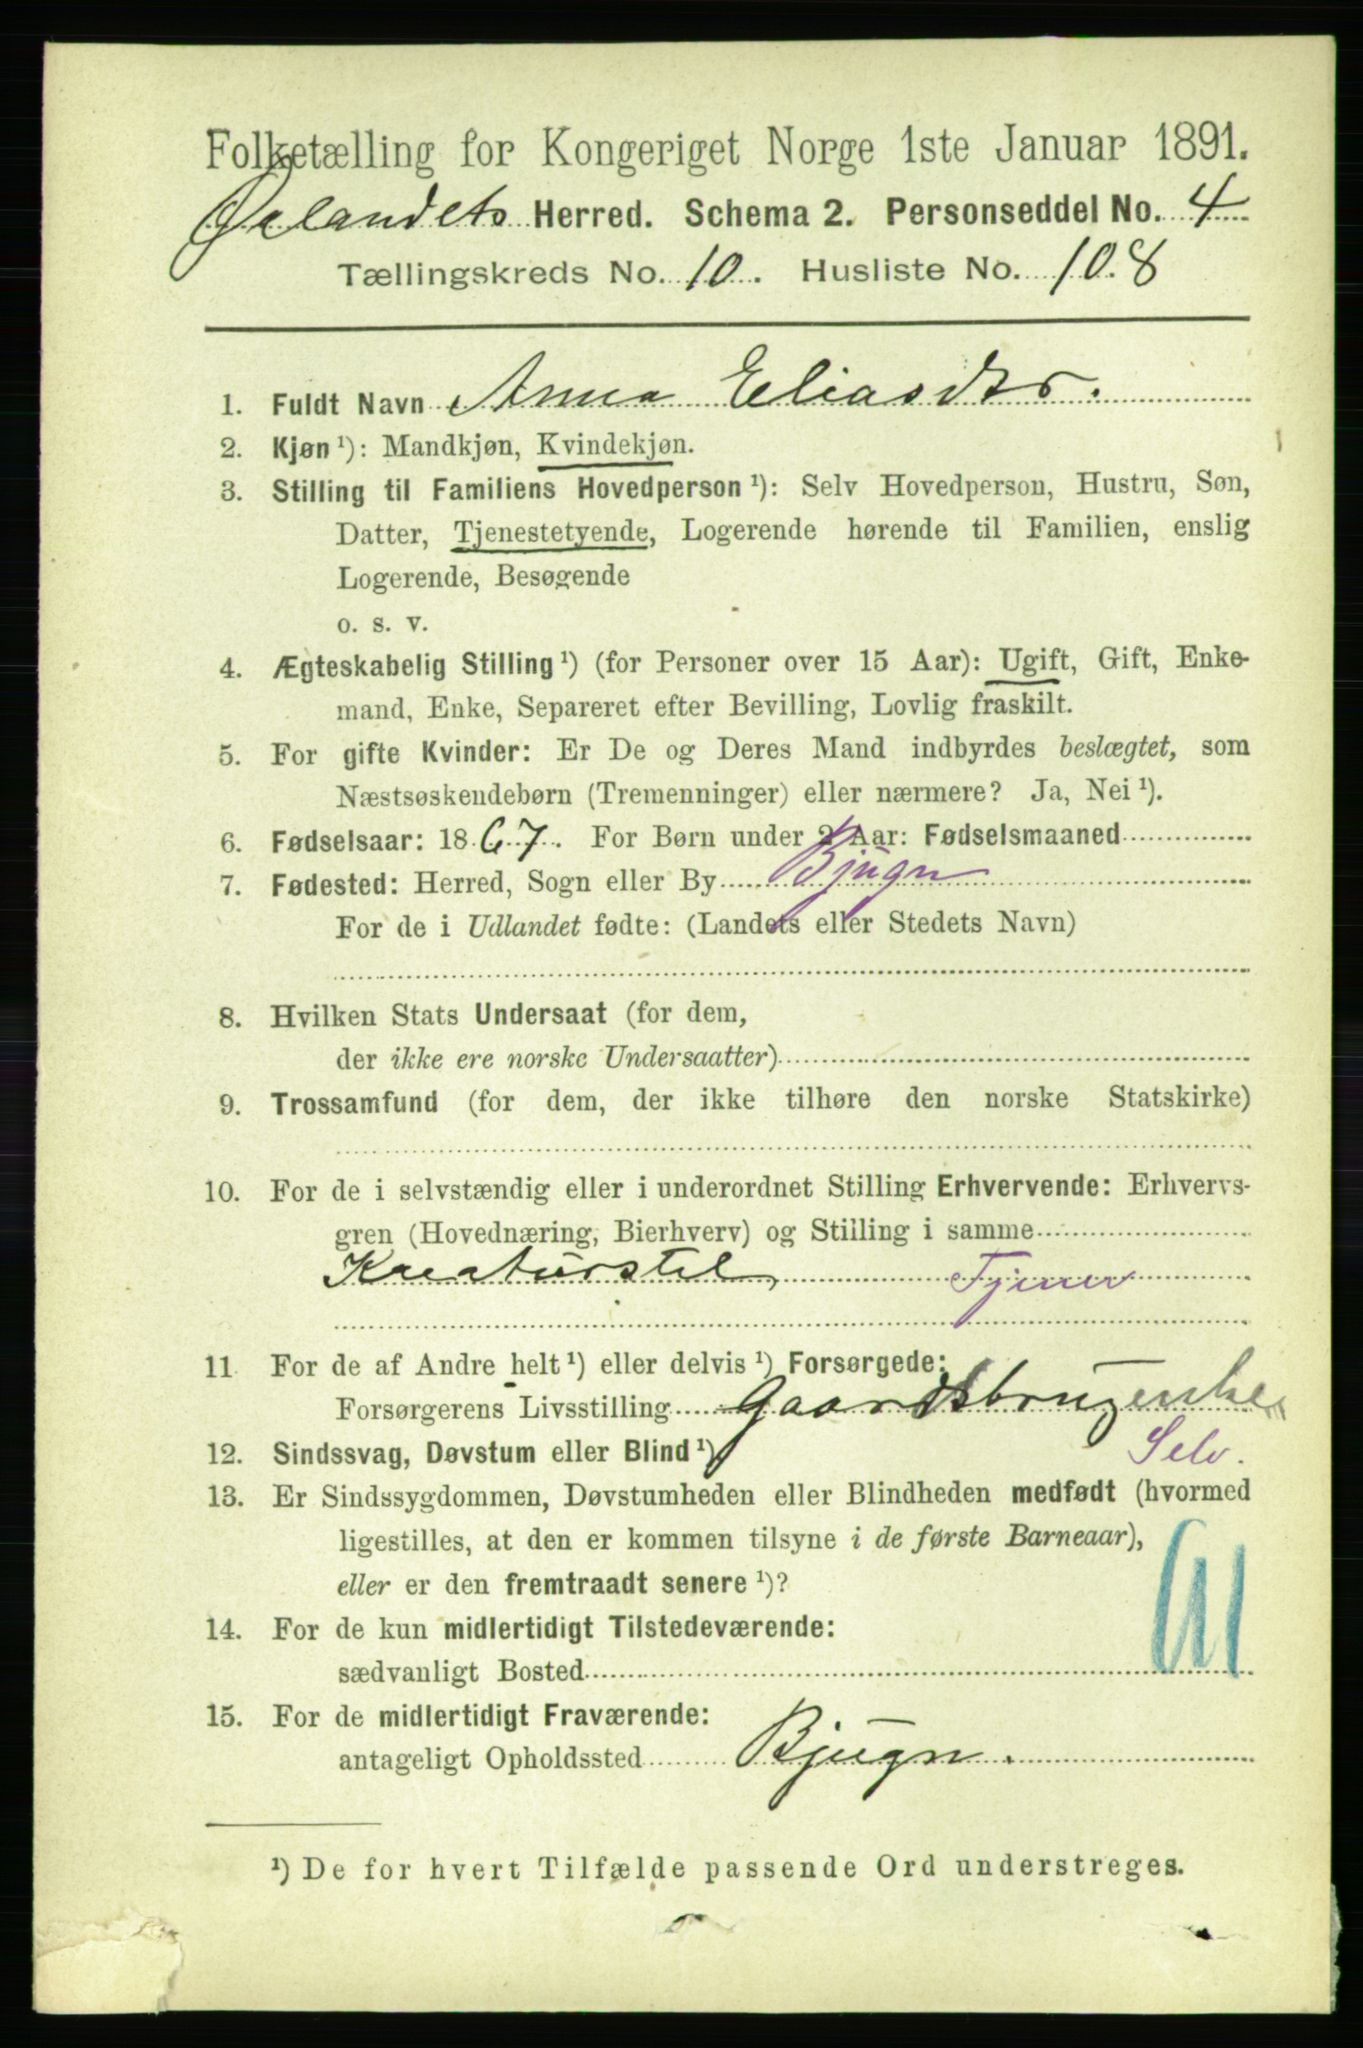 Folketælling for Kongeriget Norge 1ste Januar 1891.
Ørlandets Herred. Schema 2. Personseddel No. 4
Tællingskreds No. 10. Husliste No. 108
1. Fuldt Navn Anna Eliasdtr.
2. Kjøn ¹): Mandkjøn, Kvindekjøn.
3. Stilling til Familiens Hovedperson ¹): Selv Hovedperson, Hustru, Søn,
Datter, Tjenestetyende, Logerende hørende til Familien, enslig
Logerende, Besøgende
o. s. v.
4. Ægteskabelig Stilling ¹) (for Personer over 15 Aar): Ugift, Gift, Enke-
mand, Enke, Separeret efter Bevilling, Lovlig fraskilt.
5. For gifte Kvinder: Er De og Deres Mand indbyrdes beslægtet, som
Næstsøskendebørn (Tremenninger) eller nærmere? Ja, Nei ¹).
6. Fødselsaar: 1867. For Børn under 2 Aar: Fødselsmaaned
7. Fødested: Herred, Sogn eller By Bjugn
For de i Udlandet fødte: (Landets eller Stedets Navn)
8. Hvilken Stats Undersaat (for dem,
der ikke ere norske Undersaatter)
9. Trossamfund (for dem, der ikke tilhøre den norske Statskirke)
10. For de i selvstændig eller i underordnet Stilling Erhvervende: Erhvervs-
gren (Hovednæring, Bierhverv) og Stilling i samme
Kreaturstel, Tjener
11 For de af Andre helt ¹) eller delvis ¹) Forsørgede:
Forsørgerens Livsstilling Gaardbrugerske
12. Sindssvag, Døvstum eller Blind ¹) Selv.
13. Er Sindssygdommen, Døvstumheden eller Blindheden medfødt (hvormed
ligestilles, at den er kommen tilsyne i de første Barneaar),
eller er den fremtraadt senere ¹)?
14. For de kun midlertidigt Tilstedeværende:
sædvanligt Bosted
15. For de midlertidigt Fraværende:
antageligt Opholdssted Bjugn.
¹) De for hvert Tilfælde passende Ord understreges.